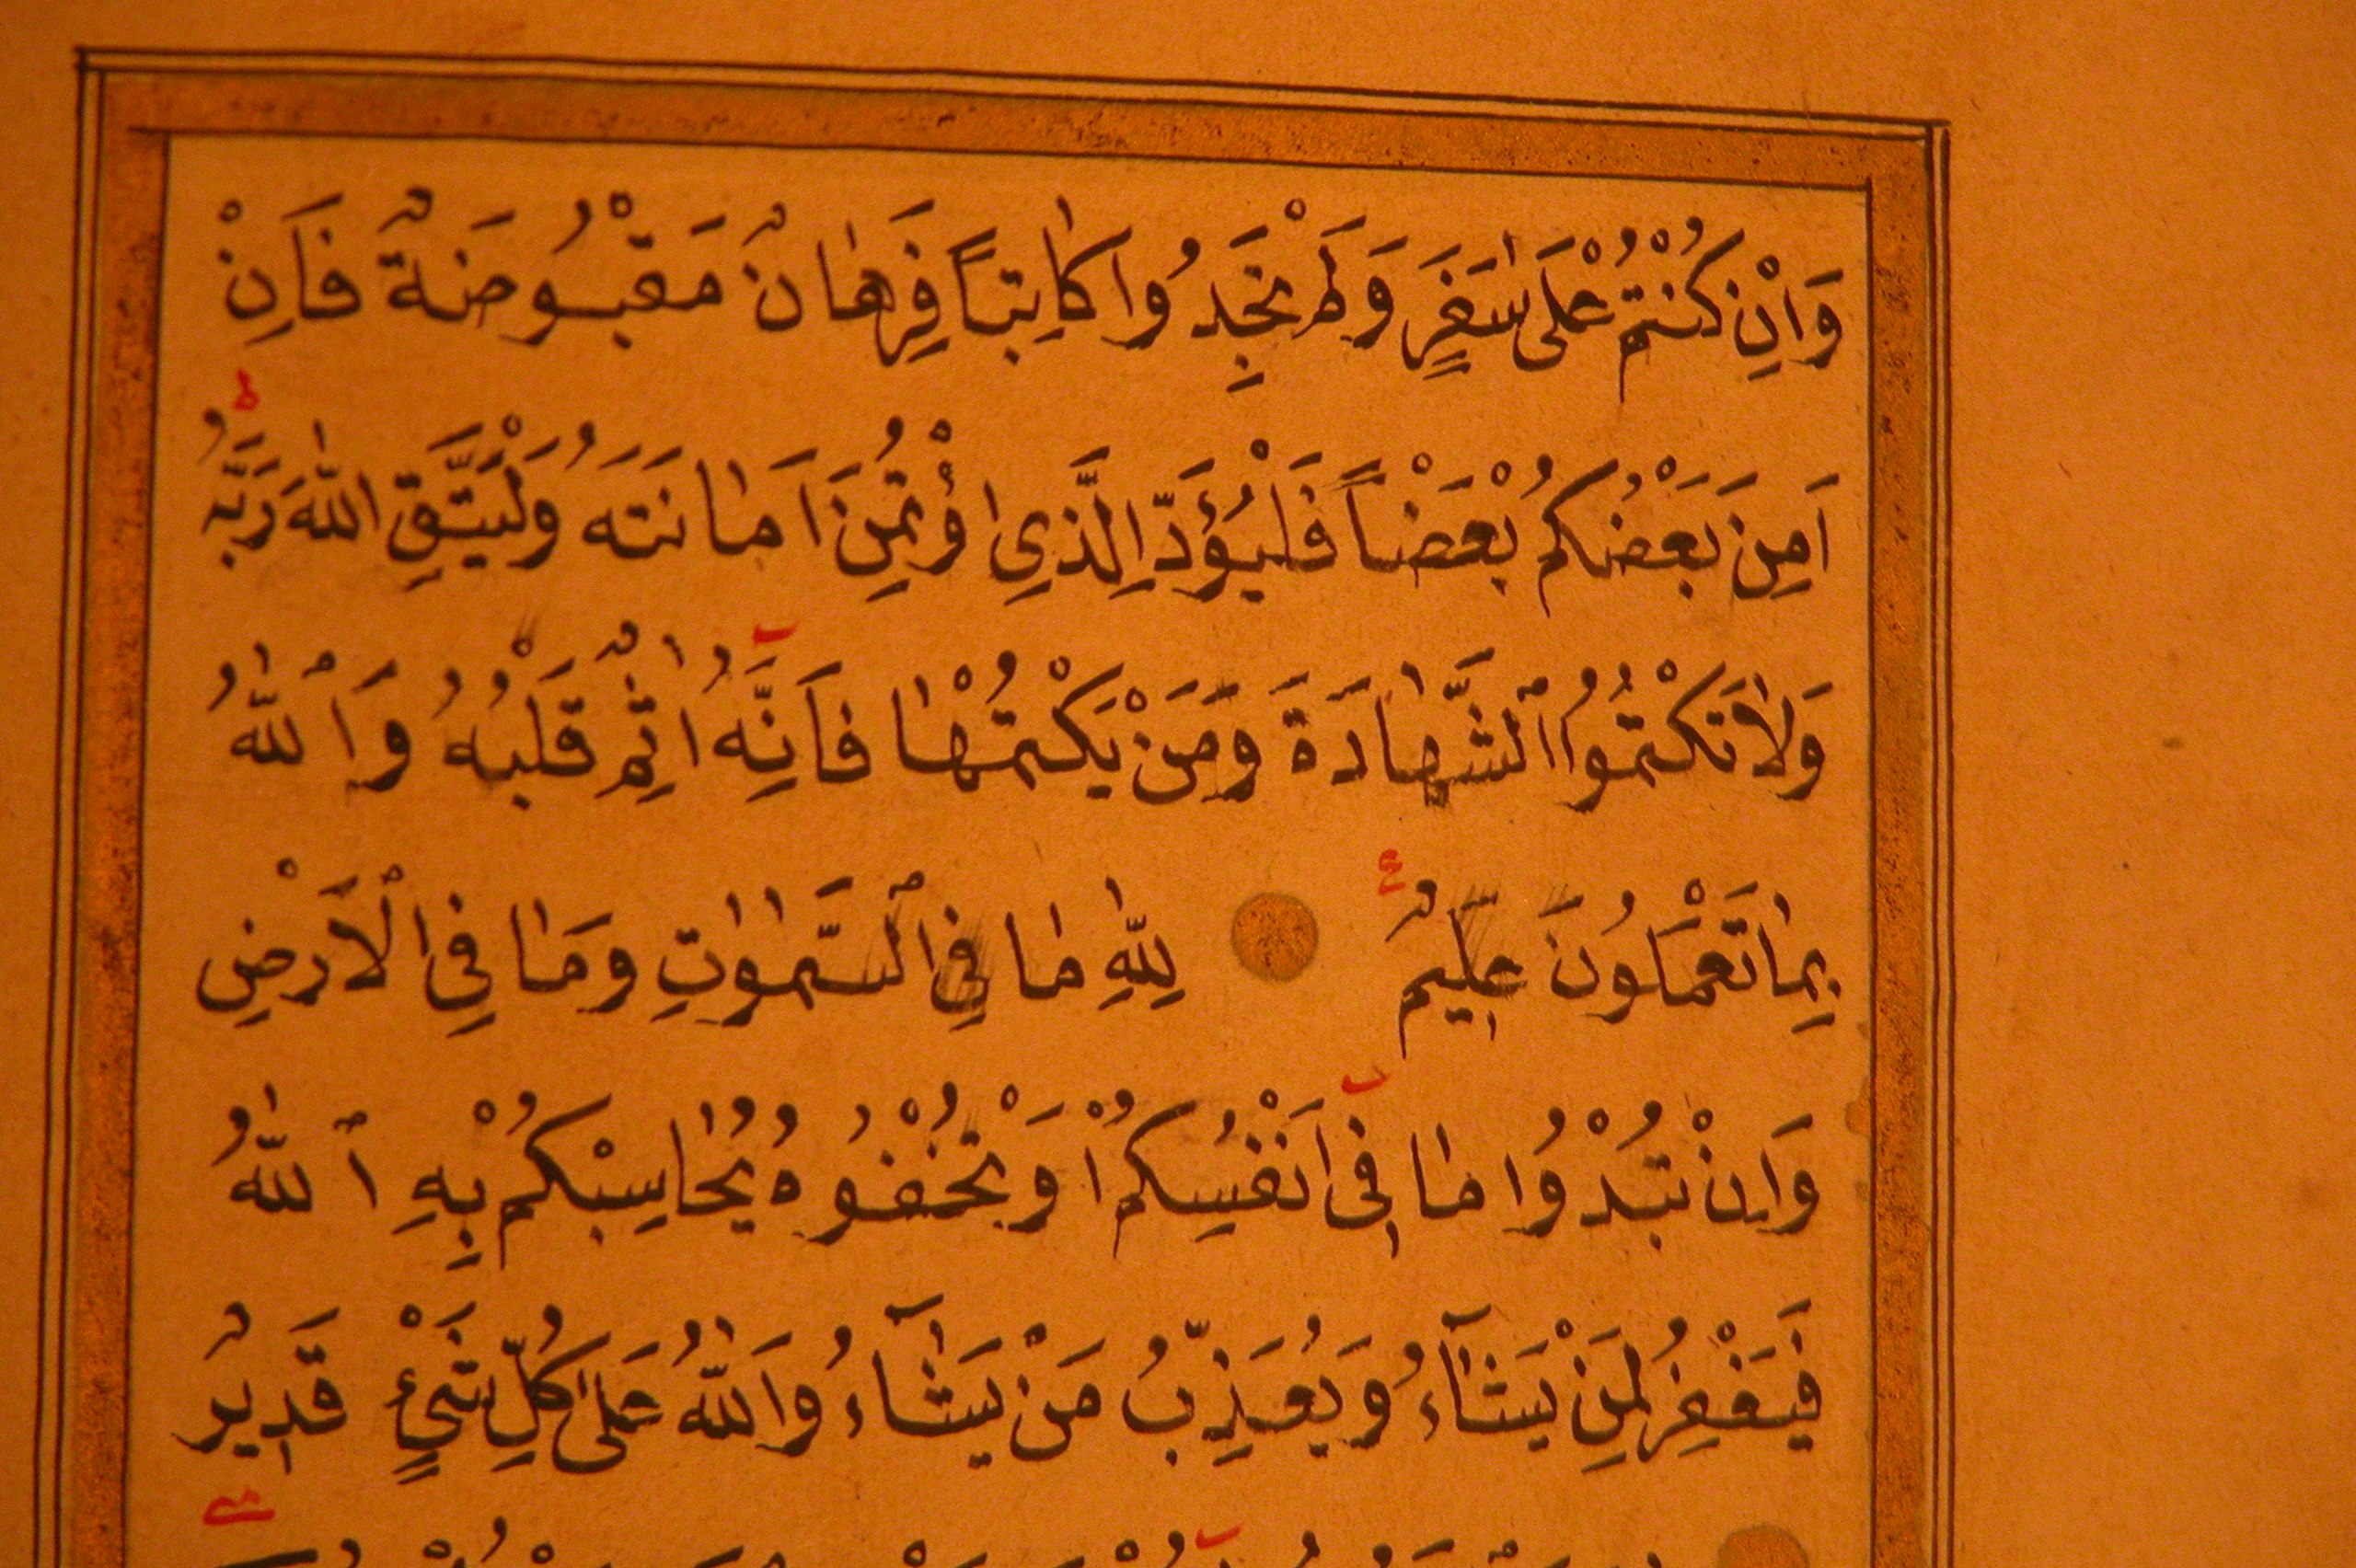 وَاِنْ كُنْتُمْ عَلٰى سَفَرٍ وَلَمْ تَجِدُوا كَاتِبًا فَرِهَانٌ مَقْبُوضَةٌ فَاِنْ
اَمِنَ بَعْضُكُمْ بَعْضًا فَلْيُؤَدِّ الَّذِي اؤْتُمِنَ اَمَانَتَهُ وَلْيَتَّقِ اللّٰهَ رَبَّهُ ط
وَلَا تَكْتُمُوا الشَّهَادَةَ وَمَنْ يَكْتُمْهَا فَاِنَّهُ اٰثِمٌ قَلْبُهُ وَاللّٰهُ
بِمَا تَعْمَلُونَ عَلِيمٌ لِلّٰهِ مَا فِي السَّمٰوَاتِ وَمَا فِي الْاَرْضِ
وَاِنْ تُبْدُوا مَا فِي اَنْفُسِكُمْ اَوْ تُخْفُوهُ يُحَاسِبْكُمْ بِهِ اللّٰهُ
فَيَغْفِرُ لِمَنْ يَشَآءُ وَيُعَذِّبُ مَنْ يَشَآءُ وَاللّٰهُ عَلٰى كُلِّ شَيْءٍ قَدِيرٌ